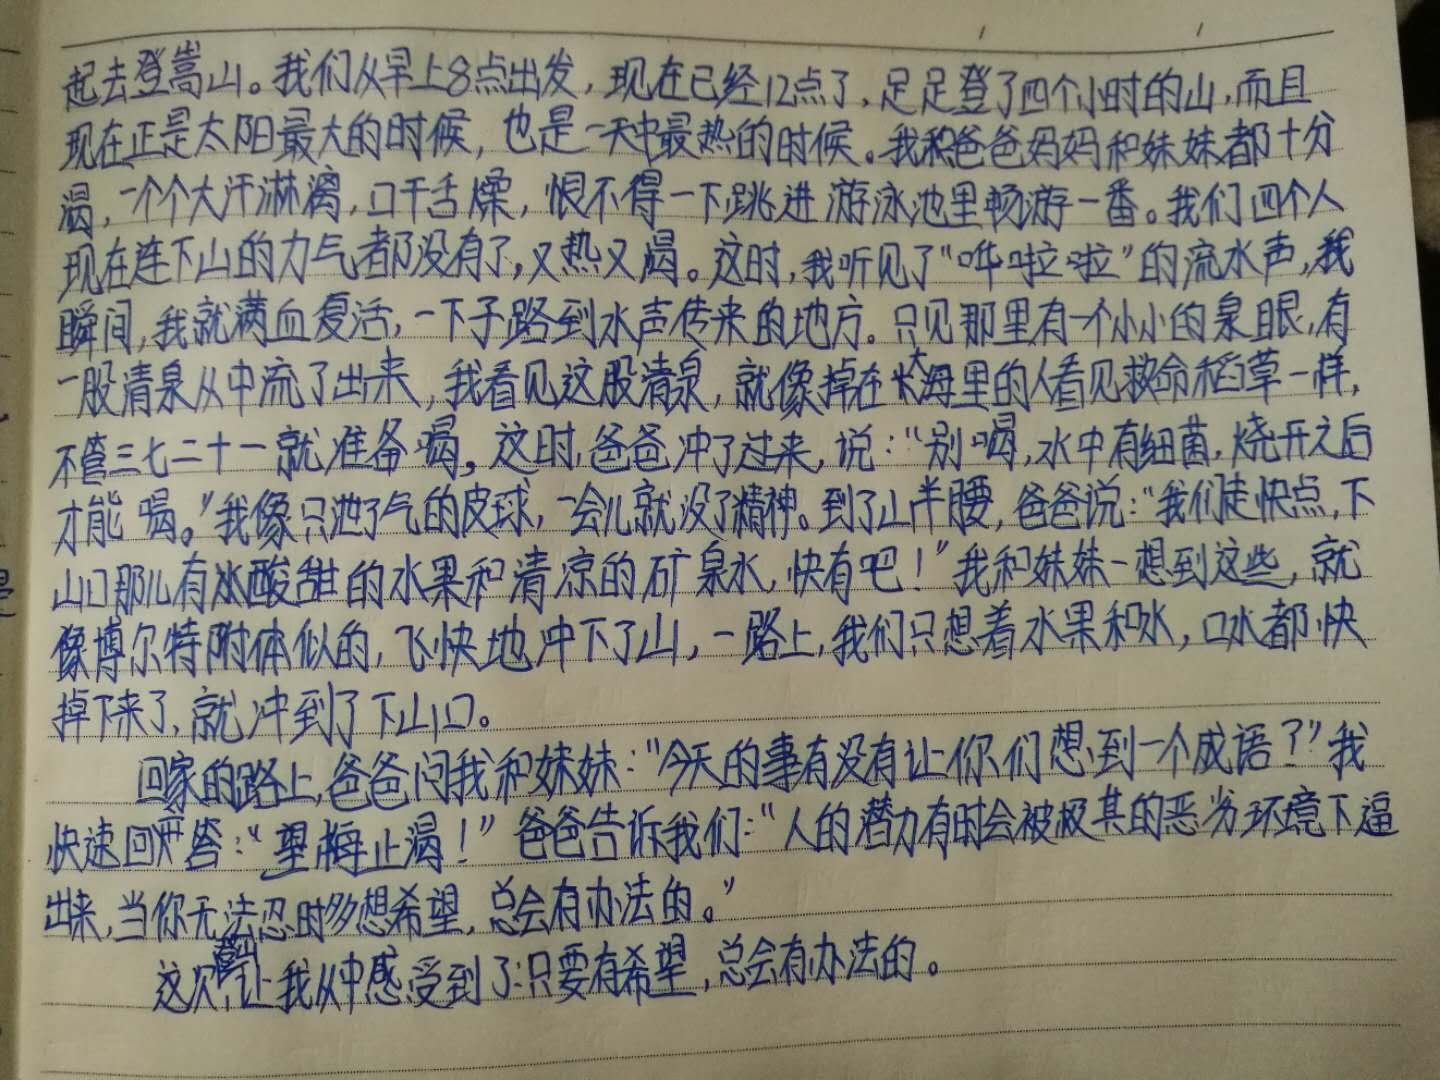 起去登嵩山。我们从早上8点出发，现在已经12点了，足足登了四个小时的山，而且
现在正是太阳最大的时候，也是一天中最热的时候。我和爸爸妈妈和妹妹都十分
渴，一个个大汗淋漓，口干舌燥，恨不得一下跳进游泳池里畅游一番。我们四个人
现在连下山的力气都没有了，又热又渴。这时，我听见了“哗啦啦”的流水声，我
瞬间，我就满血复活，一下子路到水声传来的地方。只见那里有一个小小的泉眼，有
一股清泉从中流了出来，我看见这股清泉，就像掉在大海里的人看见救命稻草一样，
不管三七二十一就准备喝。这时，爸爸冲了过来，说：“别喝，水中有细菌，烧开之后
才能喝。”我像只泄了气的皮球，一会儿就没了精神。到了山半腰，爸爸说：“我们走快点，下
山口那儿有冰酸甜的水果和清凉的矿泉水，快有吧！”我和妹妹一想到这些，就
像博尔特附体似的，飞快地冲下了山，一路上，我们只想着水果和水，口水都快
掉下来了，就冲到了下山口。
回家的路上，爸爸问我和妹妹：“今天的事有没有让你们想到一个成语？”我
快速回答：“望梅止渴！”爸爸告诉我们：“人的潜力有时会被极其的恶劣环境下逼
出来，当你无法忍时多想希望，总会有办法的。”
这次登山，让我从中感受到了：只要有希望，总会有办法的。